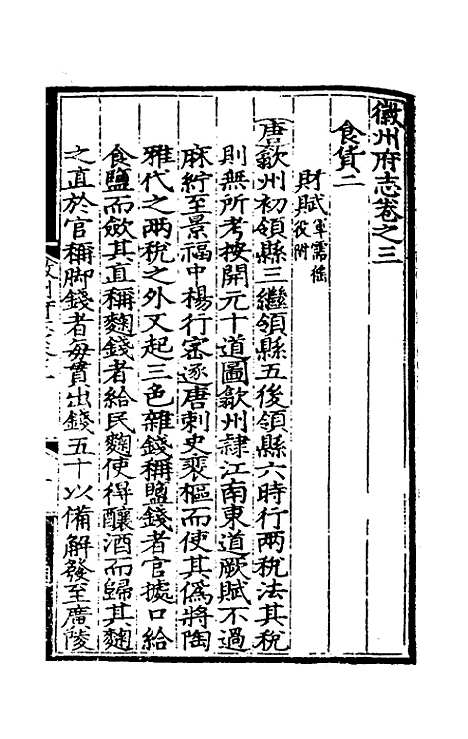 徽州府志卷之三
食貨二
財賦軍需徭役附
唐歙州初領縣三繼領縣五後領縣六時行兩稅法其稅
則無所考按開元十道圖歙州隸江南東道厥賦不過
麻紵至景福中楊行密逐唐刺史裴樞而使其偽將陶
雅代之兩稅之外又起三色雜錢稱鹽錢者官據口給
食鹽而斂其直稱麴錢者給民麴使得釀酒而歸其麴
之直於官稱脚錢者每貫出錢五十以備解發至廣陵